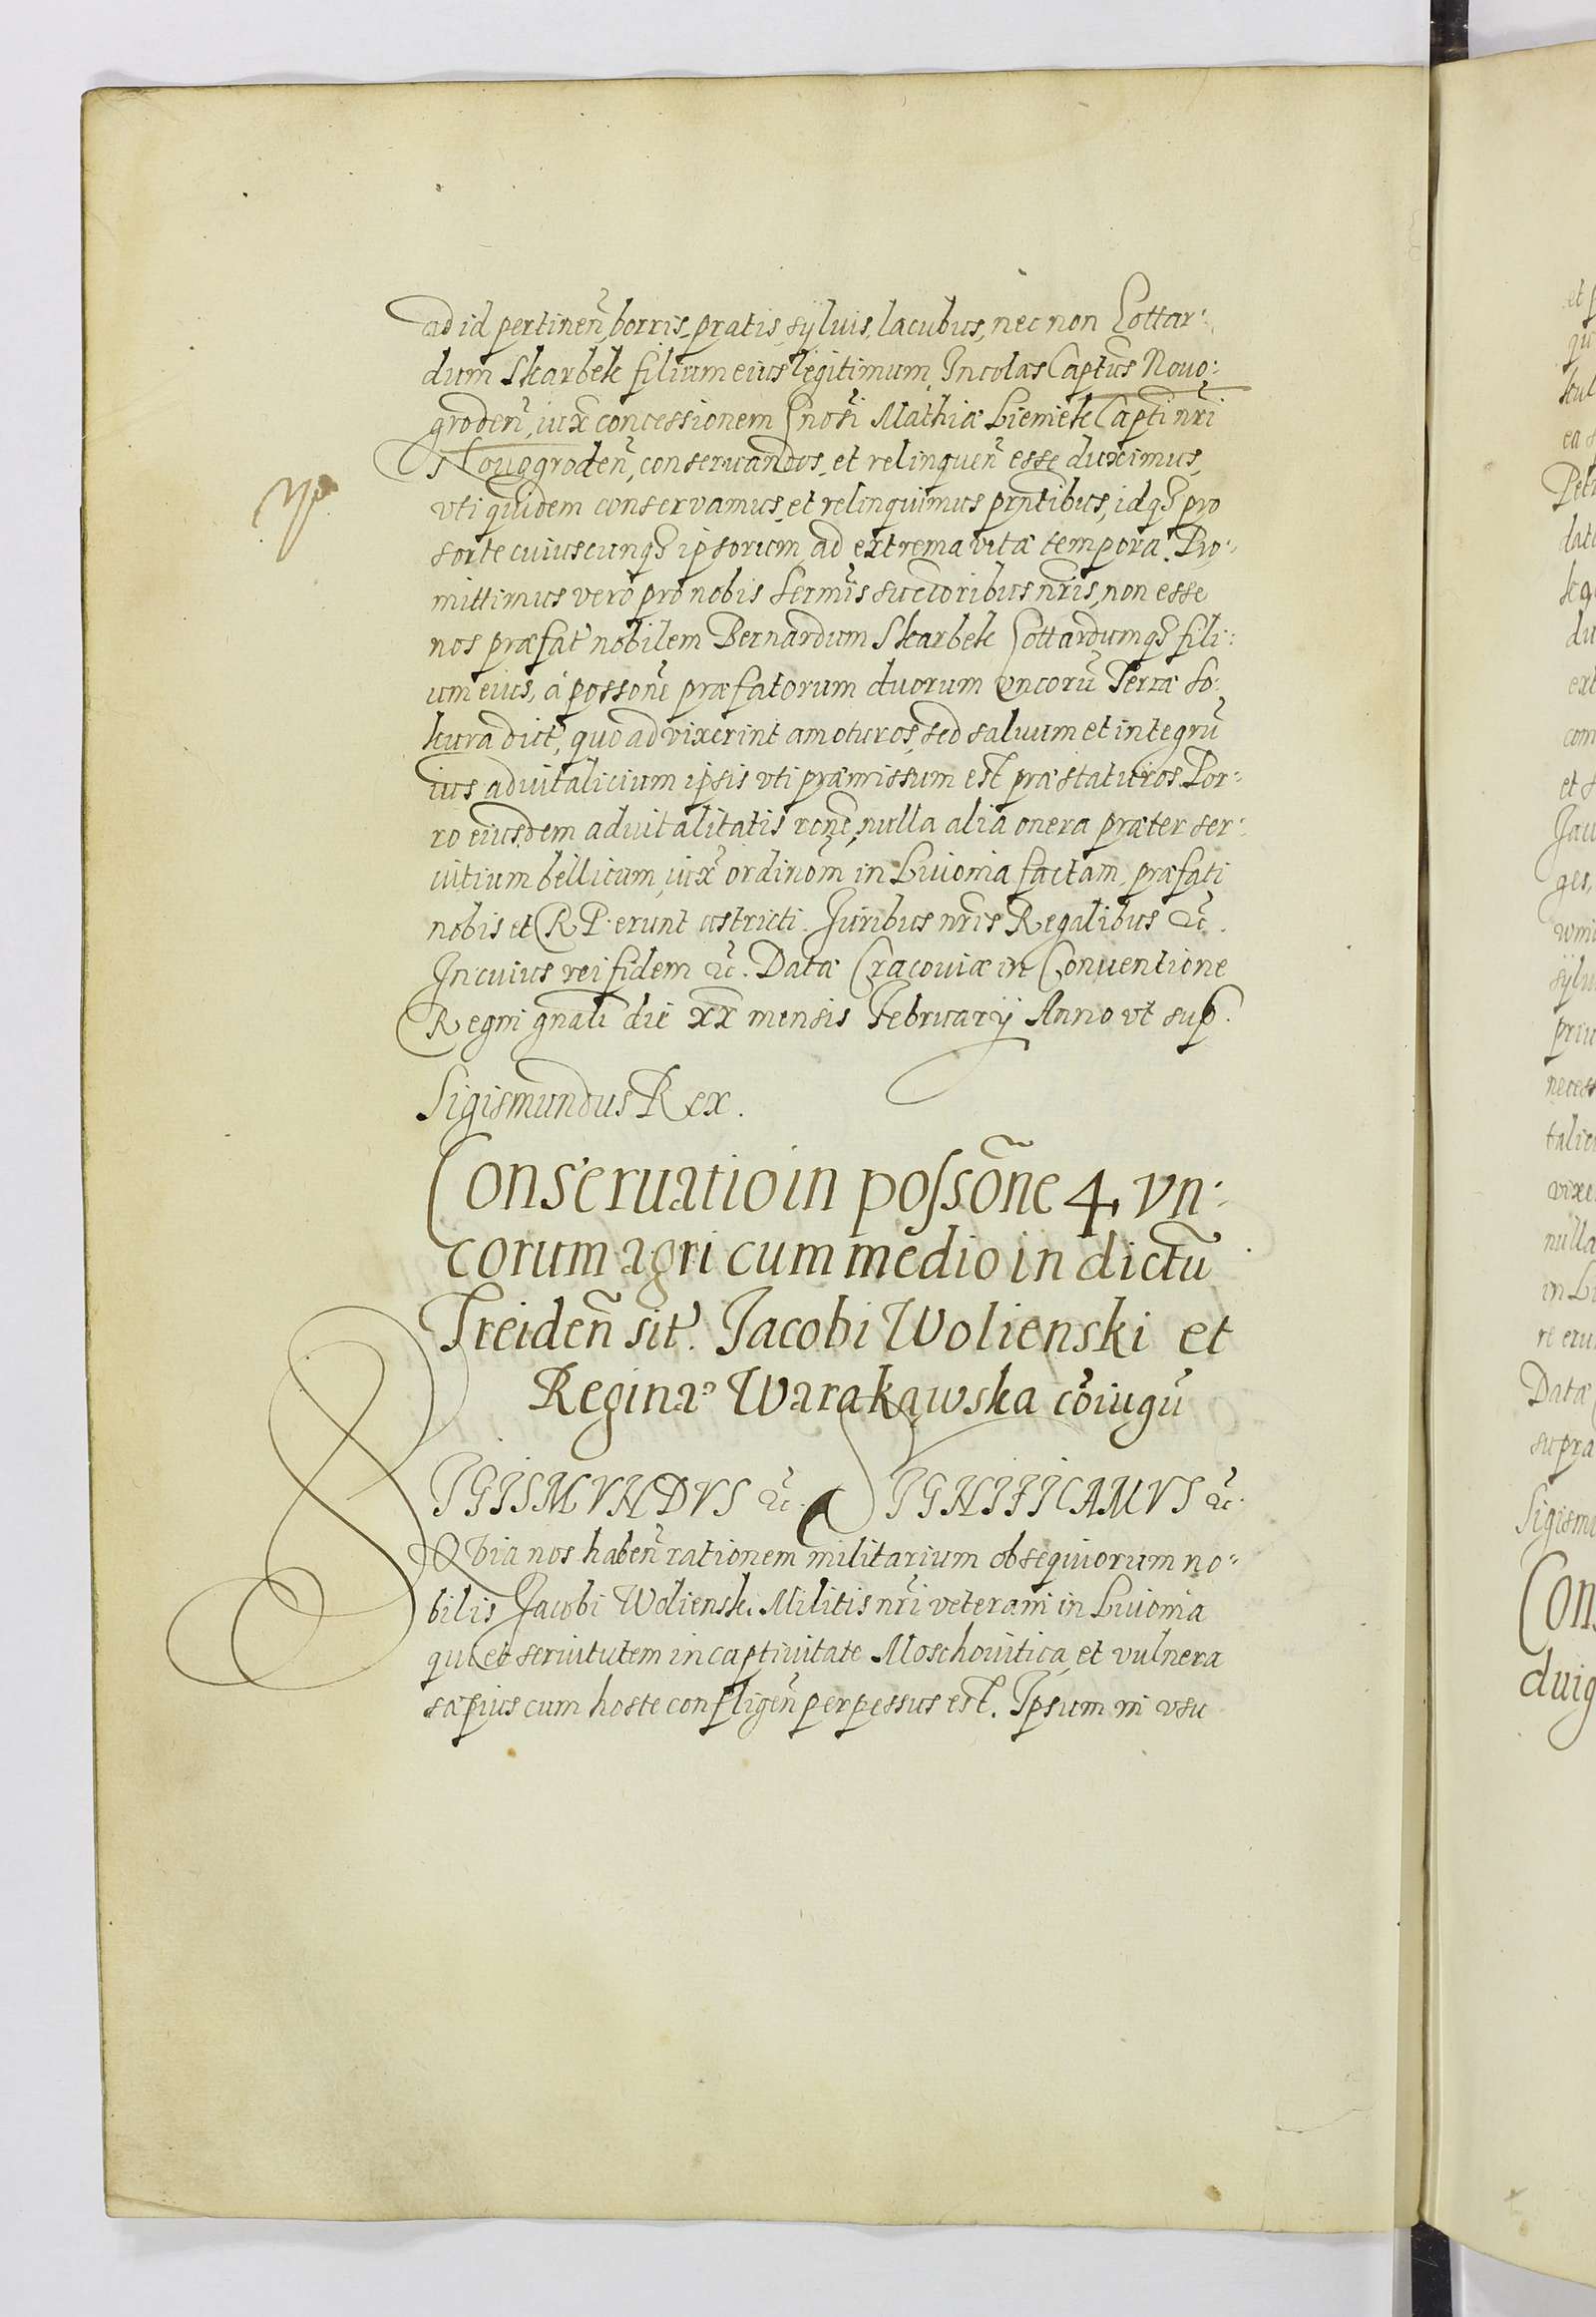 ad id pertineñ, borris, pratis, sÿluis, lacubus, nec non Gottar:
dum Skarbek filium eius legitimum, Incolas Captũs Nouo:
grodeñ, iux̃ concessionem Gnosĩ Mathiæ Lieniek Captĩ nr̃i
Nouogrodeñ, conseruandos, et relinqueñ esse duximus,
vti quidem conservamus, et relinquimus prñtibus, idq₃ pro
sorte cuiuscunq₃ ipsorum, ad extrema vitæ tempora. Pro:
mittimus vero pro nobis Sermĩs succĩoribus nr̃is, non esse
nos præfat̃ nobilem Bernardum Skarbek Gottardumq₃ fili:
um eius, á possoñe præfatorum duorum vncorũ Terræ So:
kura dict̃, quo ad vixerint amoturos, sed saluum et integrũ
ius aduitalicium ipsis vti præmissum est præstaturos. Por:
ro eiusdem aduitalitatis roñe, nulla alia onera præter ser:
uitium bellicum, iux̃ ordinoñm in Liuonia factam, præfati
nobis et R P. erunt astricti. Juribus nr̃is Regalibus &c̃.
In cuius rei fidem &c̃. Datæ Cracouiæ in Conuentione
Regni gñali die xx mensis Februarÿ Anno vt sup.
Sigismundus Rex.
Conseruatio in possõne 4 vn:
corum agri cum medio in dictũ
Treideñ sit̃. Jacobi Wolienski et
Reginæ Warakawska cõiugũ
SIGISMVNDVS &c̃. SIGNIFICAMVS &c̃.
QVia nos habeñ rationem militarium obsequiorum no:
bilis Jacobi Wolienski Militis nr̃i veterani in Liuonia
qui et seruitutem in captiuitate Moschouitica, et vulnera
sæpius cum hoste confligeñ perpessus est. Ipsum in vsu